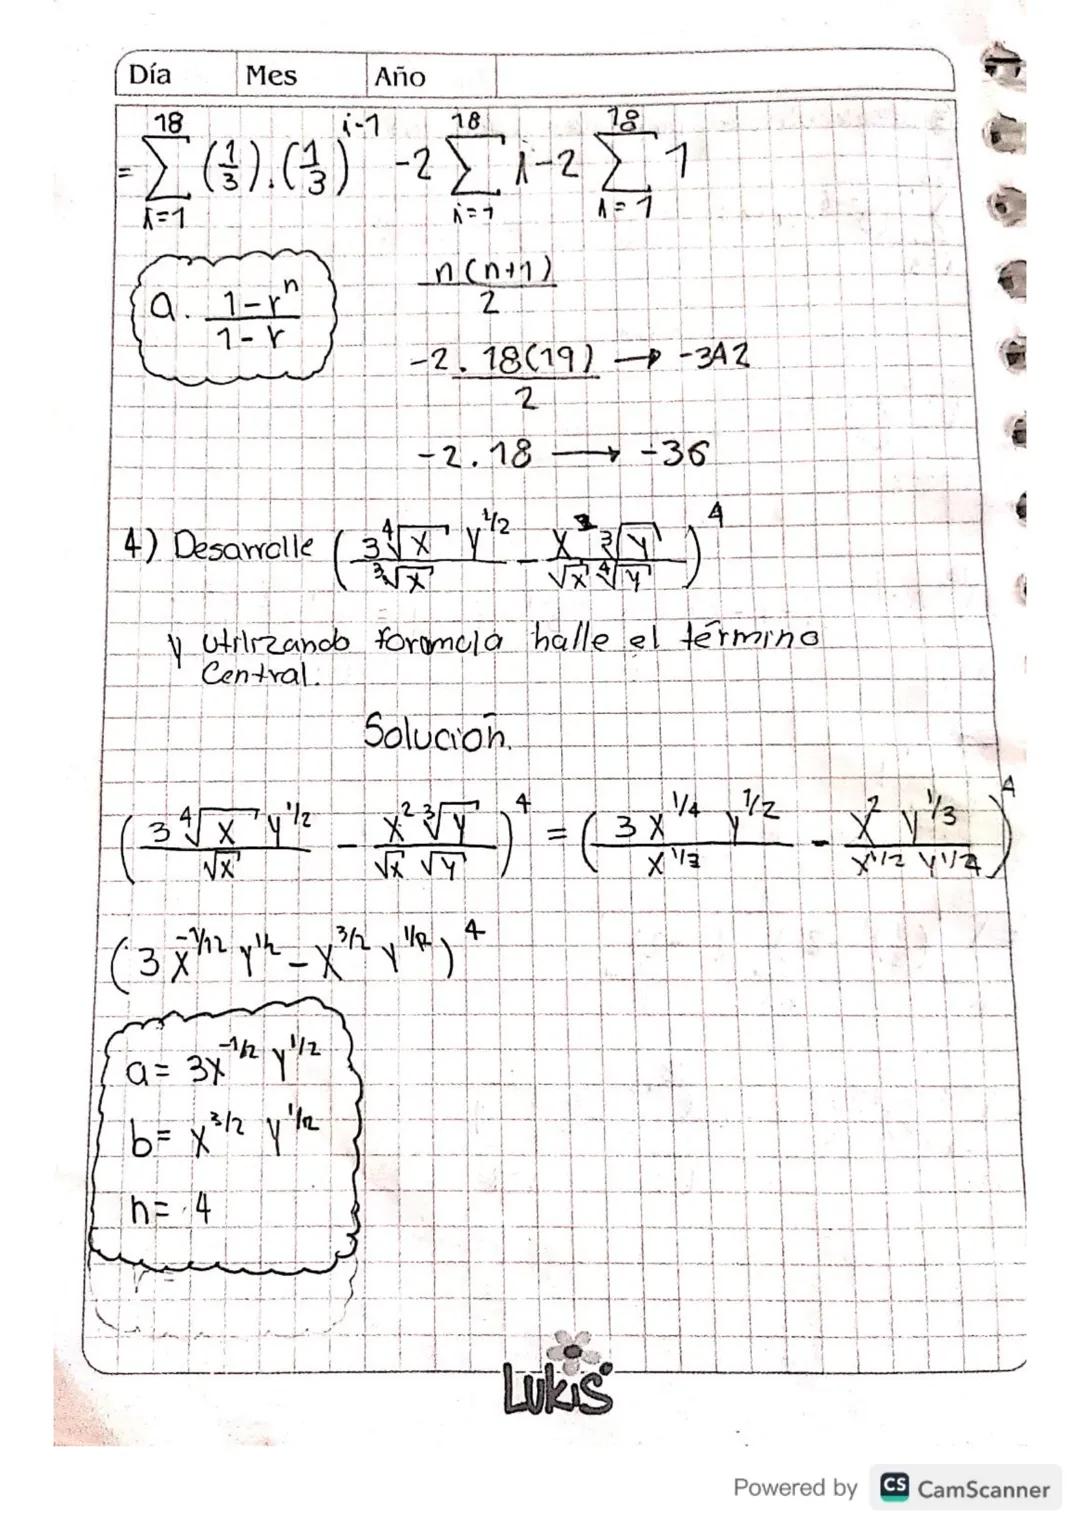 Día Mes Año
= \sum_{i=1}^{18} (1/3).(1/3)^{i-1} -2 \sum_{i=1}^{18} i -2 \sum_{i=1}^{18} 1
a. \frac{1-r^n}{1-r}
\frac{n(n+1)}{2}
\frac{-2.18(19)}{2} → -342
-2.18 → -36
4) Desarrolle (\frac{3\sqrt[4]{x} y^{1/2}}{\sqrt[3]{x}} - \frac{x^2 \sqrt[3]{y}}{\sqrt{x} \sqrt[4]{y}})^4
y utilizando foromula halle el término
Central.
Solución.
(\frac{3\sqrt[4]{x} y^{1/2}}{\sqrt{x}} - \frac{x^2 \sqrt[3]{y}}{\sqrt{x} \sqrt{y}})^4 = (\frac{3x^{1/4} y^{1/2}}{x^{1/3}} - \frac{x^2 y^{1/3}}{x^{1/2} y^{1/4}})^4
(3x^{-1/12} y^{1/2} - x^{3/2} y^{1/12})^4
a= 3x^{-1/12} y^{1/2}
b= x^{3/2} y^{1/12}
n= 4
Lukis
Powered by CS CamScanner